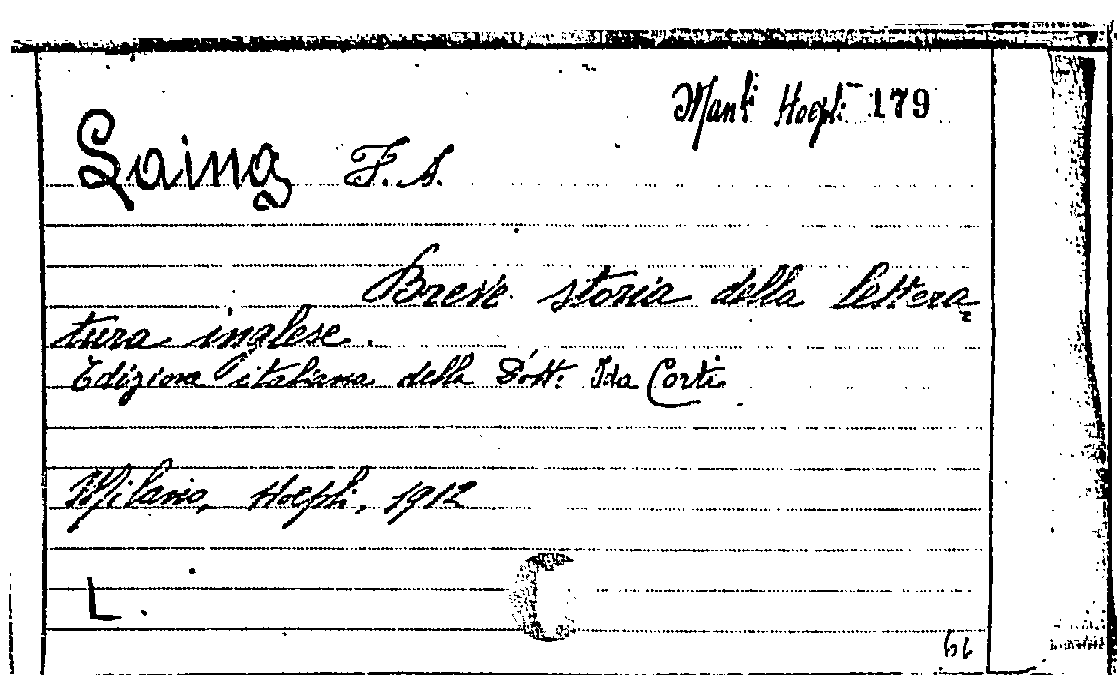 Manli Hoepli 179
Laing F. A.
Breve storia della lettera=
tura inglese.
Edizione italiana della Dott: Ida Corti.
Milano, Hoepli, 1912
L.